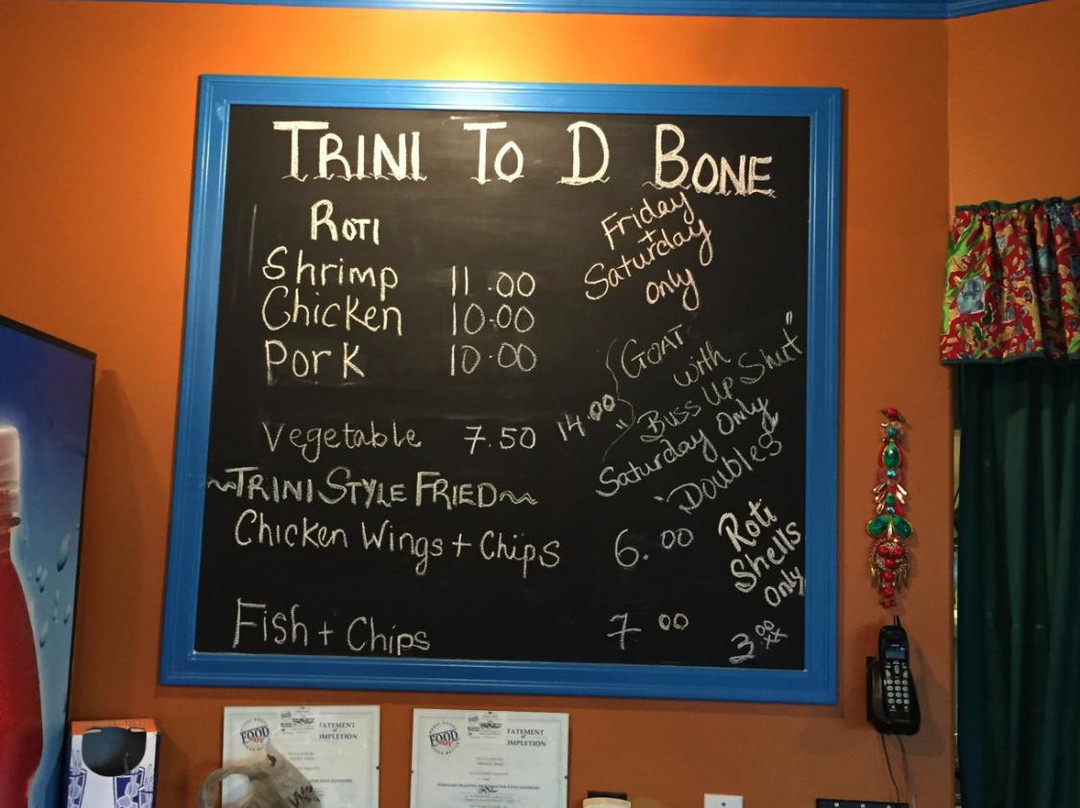 TRINI TO D BONE
ROTI
Shrimp 11.00
Chicken 10.00
Pork 10.00
Vegetable 7.50
~TRINI STYLE FRIED~
Chicken Wings + Chips 6.00
Fish + Chips 7 00
Friday
+
Saturday
only
14.00 { GOAT
with
"Buss Up Shut"
Saturday Only
"Doubles
Roti
Shells
Only
3.00
xx
FOOD
STATEMENT
of
COMPLETION
FOOD
STATEMENT
of
COMPLETION